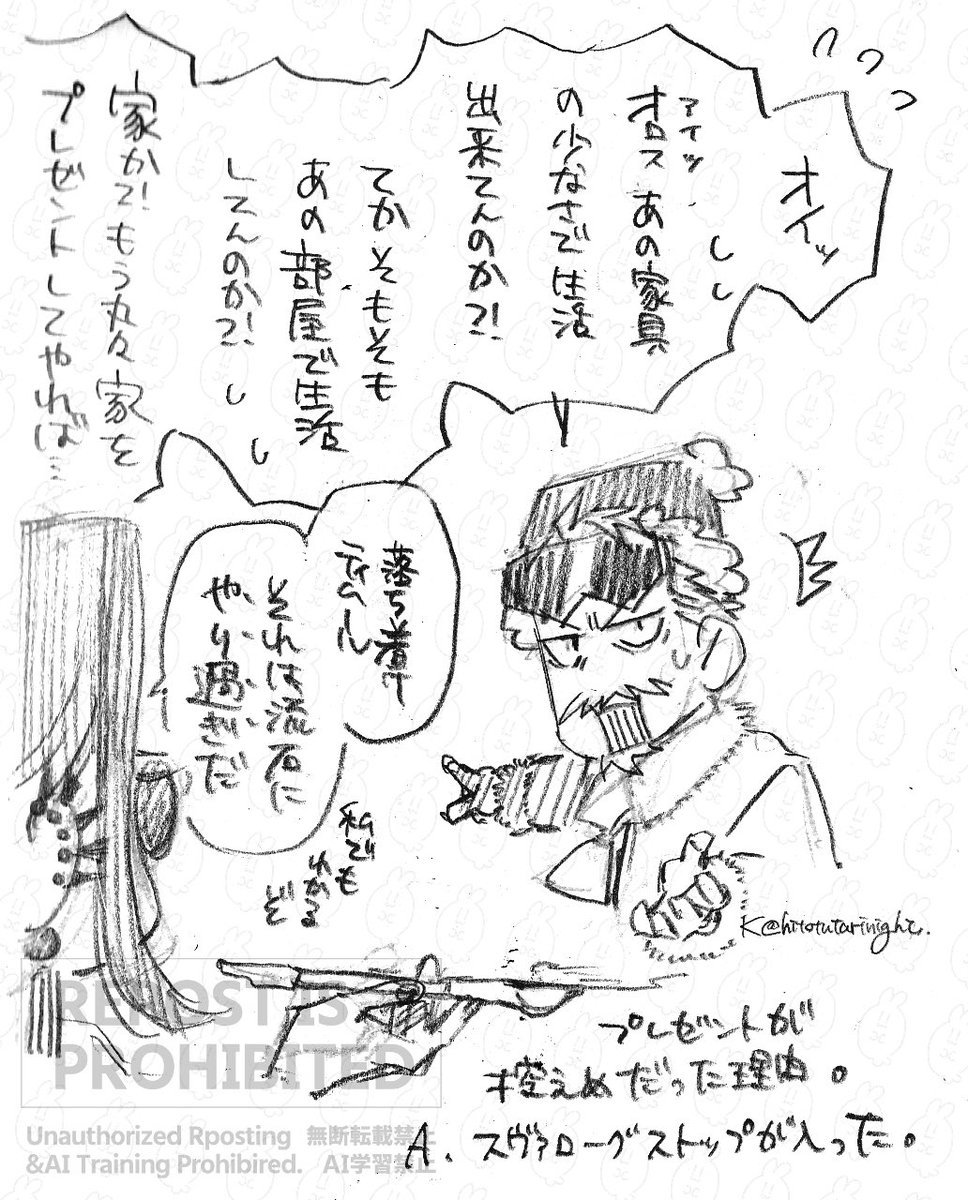 オイッ
アイツ
オロス あの家具
の少なさで生活
出来てんのか?!
てか そもそも
あの部屋で生活
してんのか?!
家か?! もう丸々家を
プレゼントしてやれば…
落ち着け
ティムール
それは流石に
やり過ぎだ
私でも
わかる
ぞ
K@hitotutarinight.
プレゼントが
控えめだった理由。
A. スヴァローグストップが入った。
REPOST IS
PROHIBITED
Unauthorized Rposting 無断転載禁止
&AI Training Prohibited. AI学習禁止